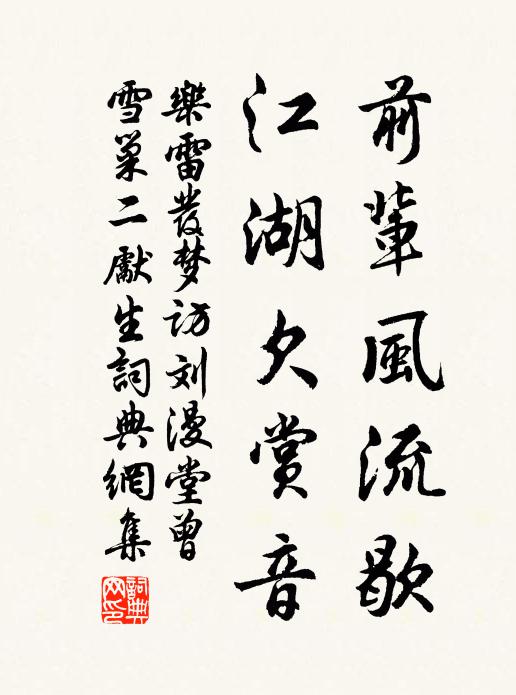 前輩風流歇
江湖欠賞音
樂雷發梦訪刘漫堂曾
雪巢二獻生詞典網集
詞典
网印